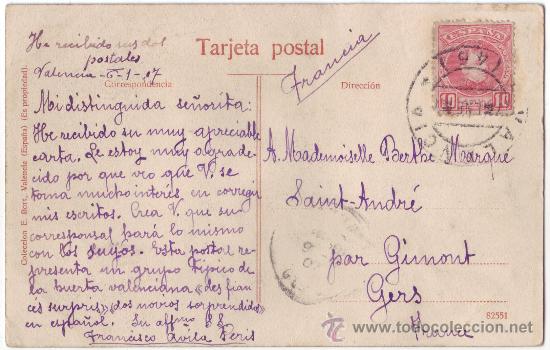 He recibido sus dos
postales
Valencia - 6-1-07
Tarjeta postal
Correspondencia
Dirección
Francia
ESPAÑA
10 10
VALENCIA
Mi distinguida señorita:
He recibido su muy apreciable
carta. Le estoy muy agrade-
cido por que vio que V. se
toma mucho interés, en corregir
mis escritos. Crea V. que su
corresponsal pará lo mismo
con los suyos. Esta postal re-
presenta un grupo típico de
la huerta valenciana «des fian-
cés surpris» «dos novios sorprendidos»
en español. Su affmo S.S.
Francisco Avila Peris
A. Mademoiselle Berthe Marque
Saint-André
par Gimont
Gers
France
Coleccion E. Bors, Valencia (España) (Es propiedad).
82551
todocoleccion.net